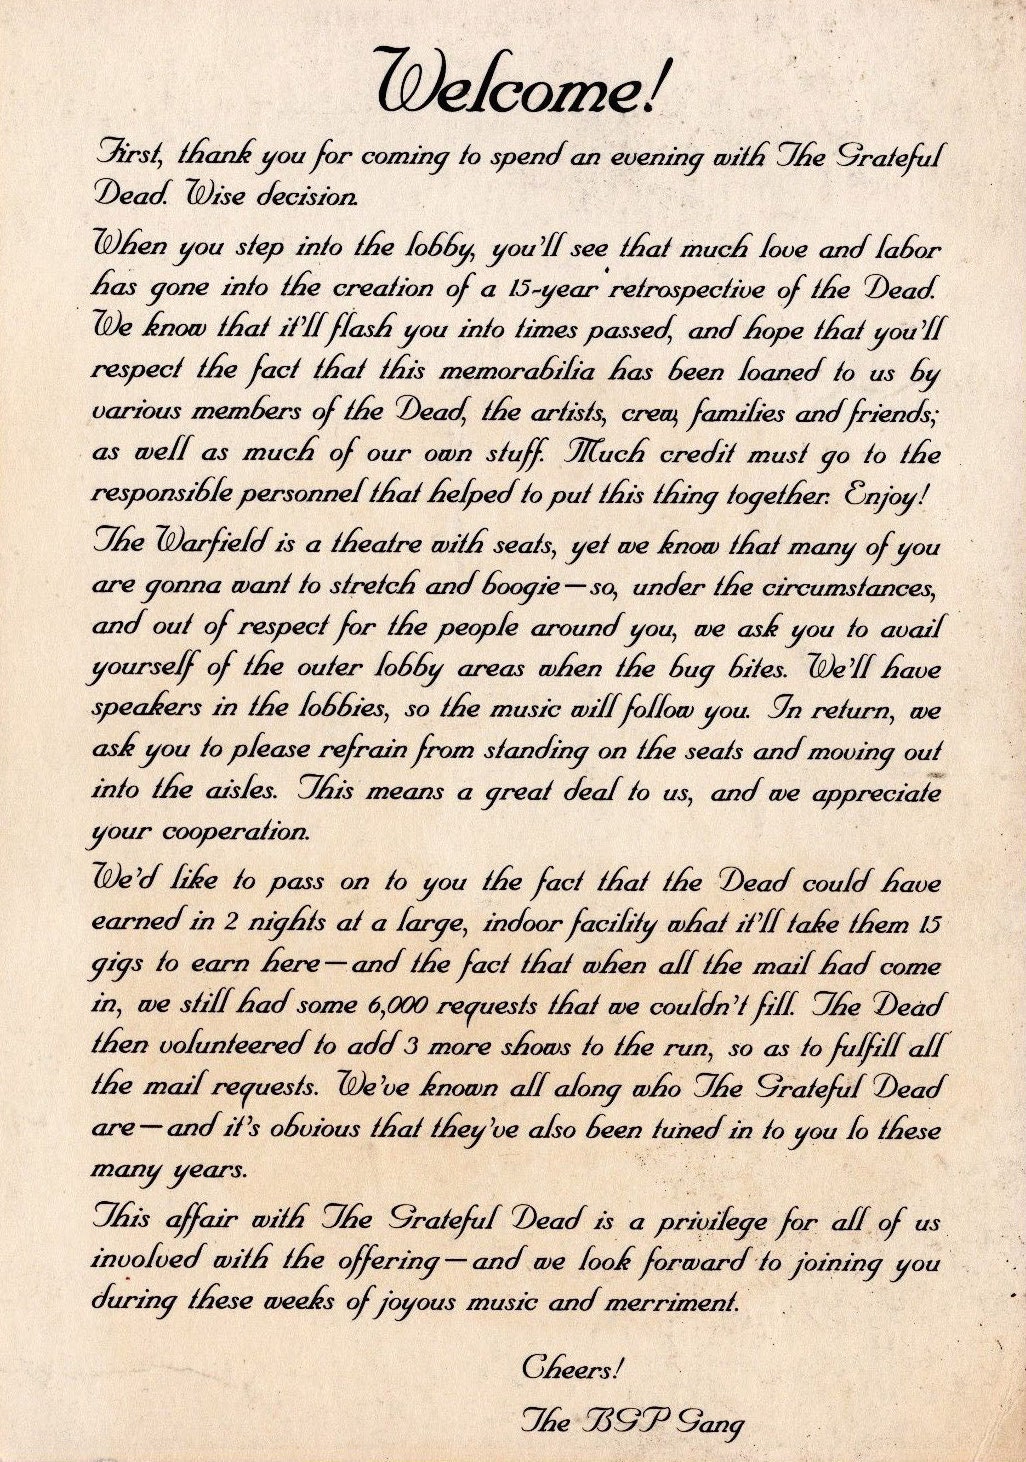 Welcome!
First, thank you for coming to spend an evening with The Grateful
Dead. Wise decision.
When you step into the lobby, you'll see that much love and labor
has gone into the creation of a 15-year retrospective of the Dead.
We know that it'll flash you into times passed, and hope that you'll
respect the fact that this memorabilia has been loaned to us by
various members of the Dead, the artists, crew, families and friends;
as well as much of our own stuff. Much credit must go to the
responsible personnel that helped to put this thing together. Enjoy!
The Warfield is a theatre with seats, yet we know that many of you
are gonna want to stretch and boogie—so, under the circumstances,
and out of respect for the people around you, we ask you to avail
yourself of the outer lobby areas when the bug bites. We'll have
speakers in the lobbies, so the music will follow you. In return, we
ask you to please refrain from standing on the seats and moving out
into the aisles. This means a great deal to us, and we appreciate
your cooperation.
We'd like to pass on to you the fact that the Dead could have
earned in 2 nights at a large, indoor facility what it'll take them 15
gigs to earn here—and the fact that when all the mail had come
in, we still had some 6,000 requests that we couldn't fill. The Dead
then volunteered to add 3 more shows to the run, so as to fulfill all
the mail requests. We've known all along who The Grateful Dead
are—and it's obvious that they've also been tuned in to you lo these
many years.
This affair with The Grateful Dead is a privilege for all of us
involved with the offering—and we look forward to joining you
during these weeks of joyous music and merriment.
Cheers!
The BGP Gang